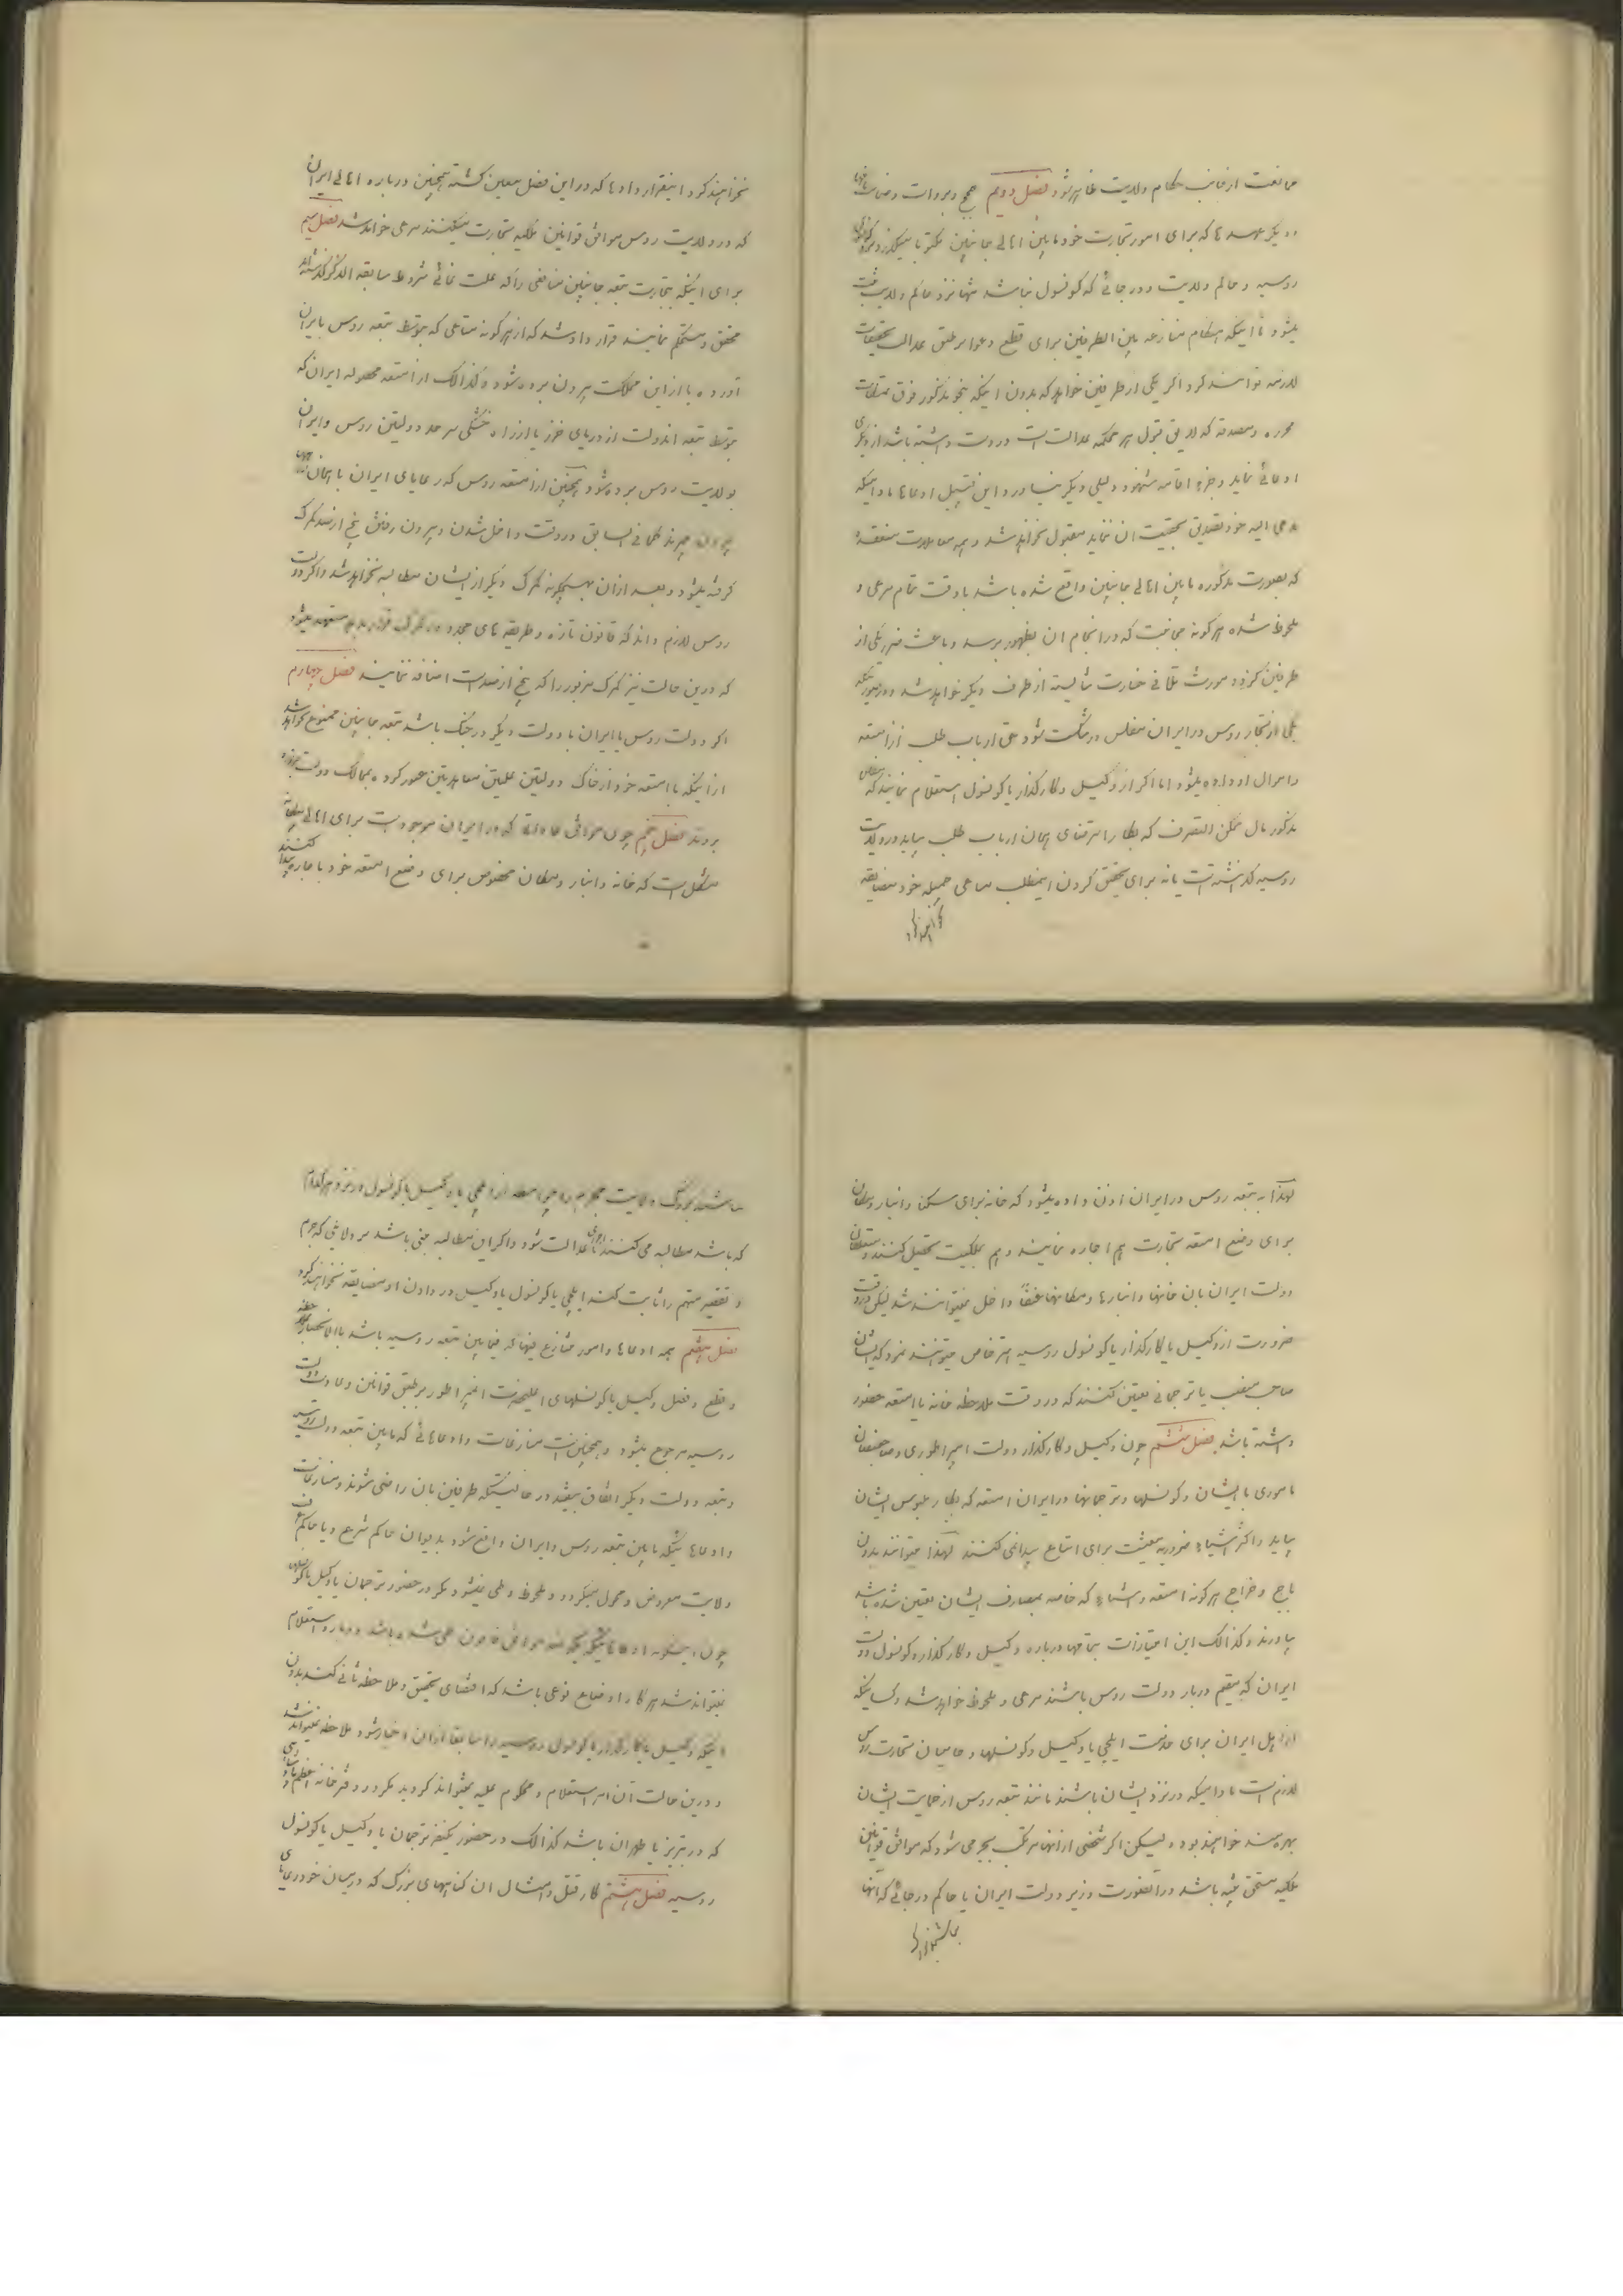 ممانعت از جانب حکام ولایت ظاهر شود فصل دویم حجج و بروات و ضمانت نامها
و دیگر عهدها که برای امور تجارت خود مابین اهالی جانبین مکتوبا میگذرد نزد کونسول
روسیه و حاکم ولایت و در جائی که کونسول نباشد تنها نزد حاکم ولایت ثبت
میشود تا اینکه هنگام منازعه بین الطرفین برای قطع دعوا بر طبق عدالت تحقیقات
لازمه توانند کرد اگر یکی از طرفین خواهد که بدون اینکه بنحو مذکور فوق تمسکات
محرره و مصدقه که لایق قبول هر محکمه عدالت است در دست داشته باشد از دیگری
ادعائی نماید و جز اقامه شهود دلیلی دیگر نیاورد این قبیل ادعاها مادامیکه
مدعی الیه خود تصدیق بحقیت ان ننماید مقبول نخواهد شد و همه معاملات منعقده
که بصورت مذکوره مابین اهالی جانبین واقع شده باشد با دقت تمام مرعی و
ملحوظ شده هر گونه مجانبت که در انجام ان بظهور برسد و باعث ضرر یکی از
طرفین گردد مورث تلافی خسارت شایسته از طرف دیگر خواهد شد و در صورتیکه
یکی از تجار روس در ایران مفلس و شکست شود حق ارباب طلب از امتعه
و اموال او داده میشود اما اگر از وکیل و کارگذار یا کونسول استعلام نمایند که مفلس
مذکور مال ممکن التصرف که بکار استرضای همان ارباب طلب بیاید در ولایت
روسیه گذاشته است یا نه برای تحقق کردن اینمطلب مساعی جمیله خود مضایقه
نخواهند کرد
نخواهند کرد اینقرار دادها که در این فصل معین گشته همچنین درباره اهالی ایران
که در ولایت روس موافق قوانین ملکیه تجارت میکنند مرعی خواهد شد فصل سیم
برای اینکه بتجارت تبعه جانبین منافعی را که علت غائی شروط سابقه الذکر گشته‌اند
محقق و مستحکم نمایند قرار داد شد که از هر گونه متاعی که بتوسط تبعه روس بایران
آورده یا از این مملکت بیرون برده شود و کذالک از امتعه محصوله ایران که
بتوسط تبعه اندولت از دریای خزر یا از راه خشکی سرحد دولتین روس و ایران
بولایت روس برده شود و همچنین از امتعه روس که رعایای ایران با همان راهها
بیرون میبرند کما فی السابق در وقت داخل شدن و بیرون رفتن پنج از صد گمرک
گرفته میشود و بعد از ان هیچگونه گمرک دیگر از ایشان مطالبه نخواهد شد و اگر دولت
روس لازم داند که قانون تازه و طریقه های مجدد در گمرک قرار بدهد متعهد میشود
که درین حالت نیز گمرک مزبور را که پنج از صد است اضافه ننماید فصل چهارم
اگر دولت روس یا ایران با دولت دیگر در جنگ باشد تبعه جانبین ممنوع نخواهند شد
از اینکه با امتعه خود از خاک دولتین علیتین معاهدتین عبور کرده بممالک دولت مزبوره
بروند فصل پنجم چون موافق عاداتی که در ایران موجود است برای اهالی بیگانه
مشکل است که خانه و انبار و مکان مخصوص برای وضع امتعه خود باجاره پیدا کنند
لهذا به تبعه روس در ایران اذن داده میشود که خانه برای سکنا و انبار و مکان
برای وضع امتعه تجارت هم اجاره نمایند و هم بملکیت تحصیل کنند و متعلقان
دولت ایران بان خانها و انبارها و مکانها عنفا داخل نمیتوانند شد لیکن در وقت
ضرورت از وکیل یا کارگذار یا کونسول روسیه استرخاص میتوانند نمود که ایشان
صاحب منصب یا ترجمانی تعیین کنند که در وقت ملاحظه خانه یا امتعه حضور
داشته باشد فصل ششم چون وکیل و کارگذار دولت امپراطوری و صاحبمنصبان
ماموری با ایشان و کونسلها و ترجمانها در ایران امتعه که بکار ملبوس ایشان
بیاید و اکثر اشیاء ضروریه معیشت برای ابتیاع پیدا نمی کنند لهذا میتوانند بدون
باج و خراج هر گونه امتعه و اشیاء که خاصه بمصارف ایشان تعیین شده باشد
بیاورند و کذالک این امتیازات بتمامها درباره وکیل و کارگذار و کونسول دولت
ایران که مقیم دربار دولت روس باشند مرعی و ملحوظ خواهد شد و کسانیکه
از اهل ایران برای خدمت ایلچی یا وکیل و کونسلها و حامیان تجارت روس
لازم است مادامیکه در نزد ایشان باشند مانند تبعه روس از حمایت ایشان
بهره‌مند خواهند بود و لیکن اگر شخصی از انها مرتکب بجرمی شود که موافق قوانین
ملکیه مستحق تنبیه باشد در انصورت وزیر دولت ایران یا حاکم در جائی که انها
نباشند بزرگ ولایت مجرم را بواسطه از ایلچی یا وکیل یا کونسول در نزد هر کدام
که باشد مطالبه می کنند تا اجرای عدالت شود و اگر این مطالبه مبنی باشد بر دلائلی که جرم
و تقصیر متهم را ثابت کند ایلچی یا کونسول یا وکیل در دادن او مضایقه نخواهند کرد
فصل هفتم همه ادعاها و امور متنازع فیها که فیمابین تبعه روسیه باشد بالانحصار بملاحظه
و قطع و فصل وکیل یا کونسلهای اعلیحضرت امپراطور بر طبق قوانین و عادات دولت
روسیه مرجوع میشود و همچنین است منازعات و ادعاهائی که مابین تبعه دولت روسیه
و تبعه دولت دیگر اتفاق بیفتد در حالتیکه طرفین بان راضی شوند و منازعات
و ادعاهائیکه مابین تبعه روس و ایران واقع شود بدیوان حاکم شرع و یا حاکم عرف
ولایت معروض و محول میگردد و ملحوظ و طی نمیشود مگر در حضور ترجمان یا وکیل یا کونسول
چون اینگونه ادعاها یکدفعه موافق قانون طی شده باشد دوباره استعلام
نمیتواند شد هر گاه اوضاع نوعی باشد که اقتضای تحقیق و ملاحظه ثانی کند بدون
اینکه وکیل یا کارگذار یا کونسول روسیه را سابقا از ان اخبار شود ملاحظه نمیتواند شد
و درین حالت آن امر استعلام و محکوم علیه نمیتواند گردید مگر در دفتر خانه اعظم پادشاهی
که در تبریز یا طهران باشد کذالک در حضور یکنفر ترجمان یا وکیل یا کونسول
روسیه فصل هشتم کار قتل و امثال ان گناههای بزرگ که در میان خود رعایای